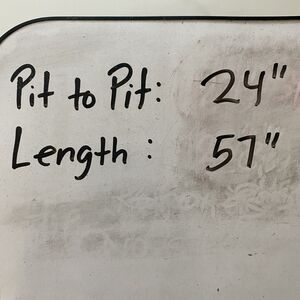 Pit to Pit: 24"
Length : 57"